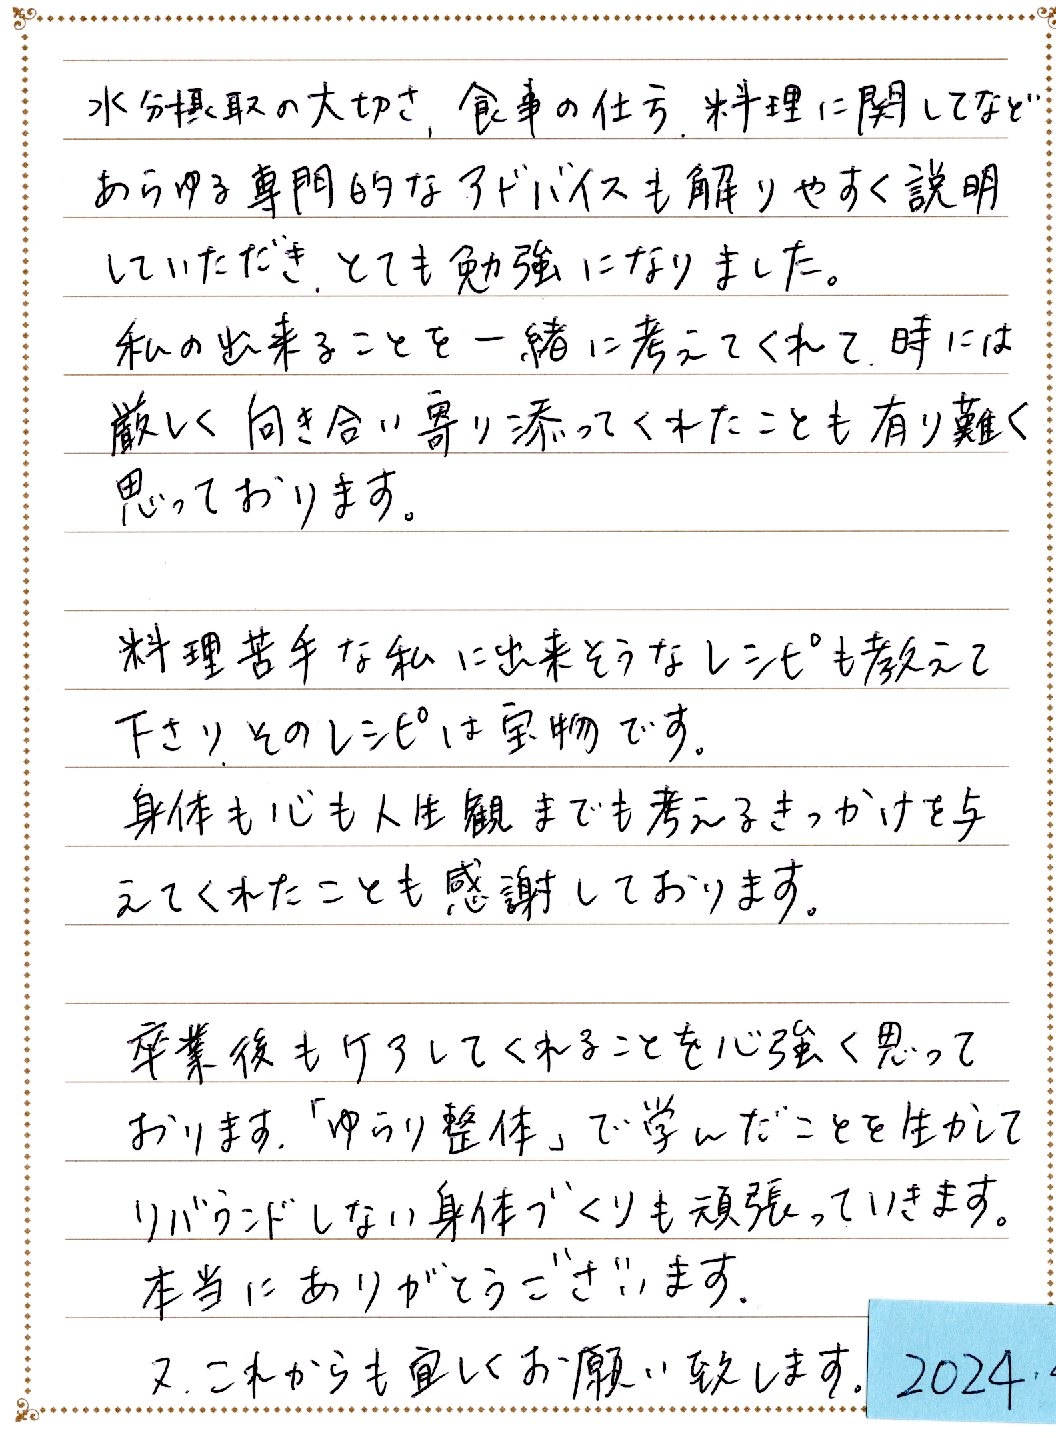 水分摂取の大切さ、食事の仕方、料理に関してなど
あらゆる専門的なアドバイスも解りやすく説明
していただき、とても勉強になりました。
私の出来ることを一緒に考えてくれて、時には
厳しく向き合い寄り添ってくれたことも有り難く
思っております。
料理苦手な私に出来そうなレシピも教えて
下さり、そのレシピは宝物です。
身体も心も人生観までも考えるきっかけを与
えてくれたことも感謝しております。
卒業後もケアしてくれることを心強く思って
おります。「ゆらり整体」で学んだことを生かして
リバウンドしない身体づくりも頑張っていきます。
本当にありがとうございます。
又、これからも宜しくお願い致します。
2024.